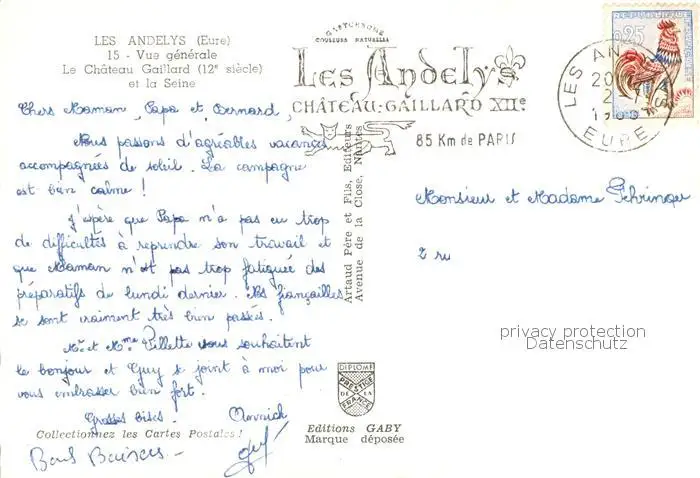 LES ANDELYS (Eure)
15 - Vue générale
Le Château Gaillard (12e siècle)
et la Seine
Chers Maman, Papa et Bernard,
Nous passons d'agréables vacances
accompagnées de soleil. La campagne
est bien calme !
J'espère que Papa n'a pas eu trop
de difficultés à reprendre son travail et
que Maman n'est pas trop fatiguée des
préparatifs de lundi dernier. Nos fiançailles
se sont vraiment très bien passées.
Mr et Mme Pillette vous souhaitent
le bonjour et Guy se joint à moi pour
vous embrasser bien fort.
Grosses bises. Annick
Collectionnez les Cartes Postales !
Bons Baisers -
Guy
GASTRONOMIE
COULEURS NATURELLES
Les Andelys
CHÂTEAU-GAILLARD XIIe
85 Km de PARIS
Artaud Père et Fils, Editeurs
Avenue de la Close, Nantes
DIPLOME
PRESTIGE
DE LA
FRANCE
Editions GABY
Marque déposée
REPUBLIQUE
0,25
LES AN
EURE
Monsieur et Madame Gehringer
2 ru
privacy protection
Datenschutz